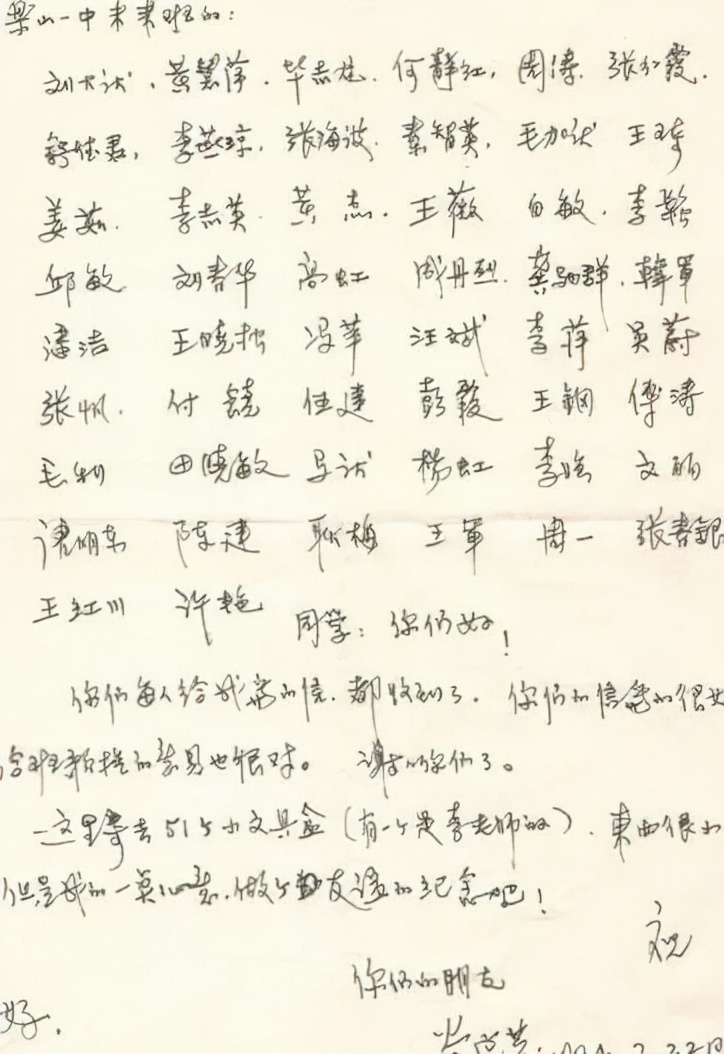 乐山一中未来班的：
刘大伏、黄慧萍、毕志龙、何静红，周涛、张红霞、
李燕琼，张海波、秦智英，毛加伏 王琦
姜茹、李志英、黄杰、王薇 白敏、李
邱敏 刘春华 高虹 周丹烈、群、韩军
潘洁 王晓 冯苹 汪斌 李萍 吴蔚
张帆、付饶 任建 彭霞 王钢 傅涛
毛利 田晓敏 马 杨虹 李 文丽
陈建 耿梅 王军 周一 张春银
王红川 许艳 同学：你们好！
你们每人给我写的信，都收到了。你们的信写的很
给班的也很对。谢谢你们了。
这里寄去51个小文具盒（有一个是李老师的）、东西很小
但是我的一点心意、做个友谊的纪念吧！
祝
你们的朋友
好。